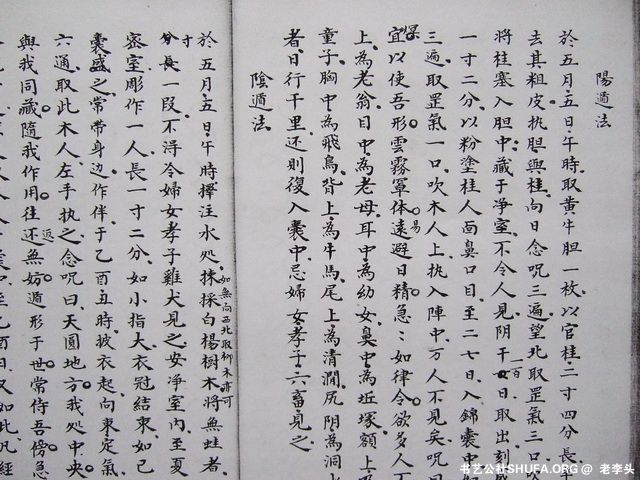 陽遁法
於五月五日午時取黃牛胆一枚以官桂二寸四分長
去其粗皮执胆與桂向日念呪三遍望北取罡氣三口吹
將桂塞入胆中藏于净室不令人見阴干一百日取出刻
一寸二分以粉塗桂人面鼻口目至二七日入錦囊中
三遍取罡氣一口吹木人上执入陣中万人不見矣呪曰
宜以使吾形雲霧罩体遠避日精急〻如律令欲多人
上為老翁目中為老母耳中為幼女鼻中為坵塚額上
童子胸中為飛鳥背上為牛馬尾上為清澗尻阴為洞
者日行千里还則復入囊中忌婦女孝子六畜見之
陰遁法
於五月五日午時擇注水处採白楊樹木將無蛀者
如無向西北取柳木亦可
寸分長一段不淂令婦女孝子雞犬見之安净室內至夏
密室彫作一人長一寸二分如小指大衣冠結束如己
囊盛之常带身边作伴于乙酉五時披衣起向東定氣
六通取此木人左手执之念呪曰天圆地方我处中央
與我同藏隨我作用往还返無妨遁形于世常侍吾傍急
书艺公社SHUFA.ORG @ 老李头